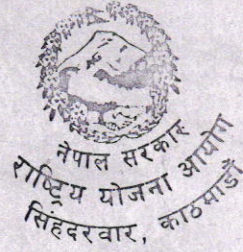 नेपाल सरकार
राष्ट्रिय योजना आयोग
सिंहदरवार, काठमाडौं